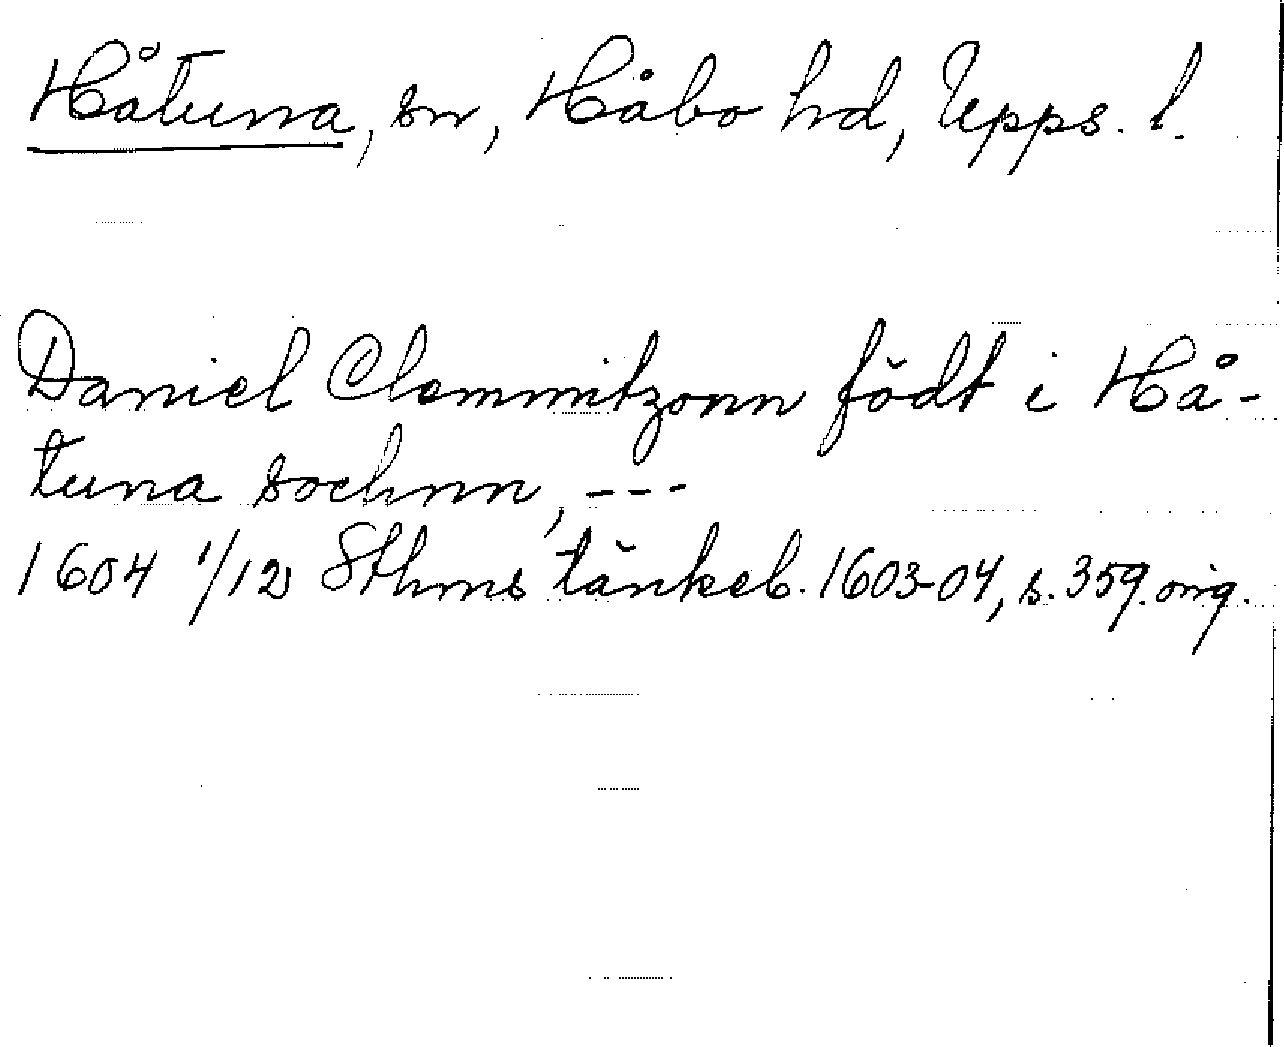 Håtuna, sn, Håbo hd, Upps. l.
Daniel Clemmitzonn född i Hå-
tuna sochnn, ---
1604 1/12 Sthms tänkeb. 1603-04, s. 359. orig.